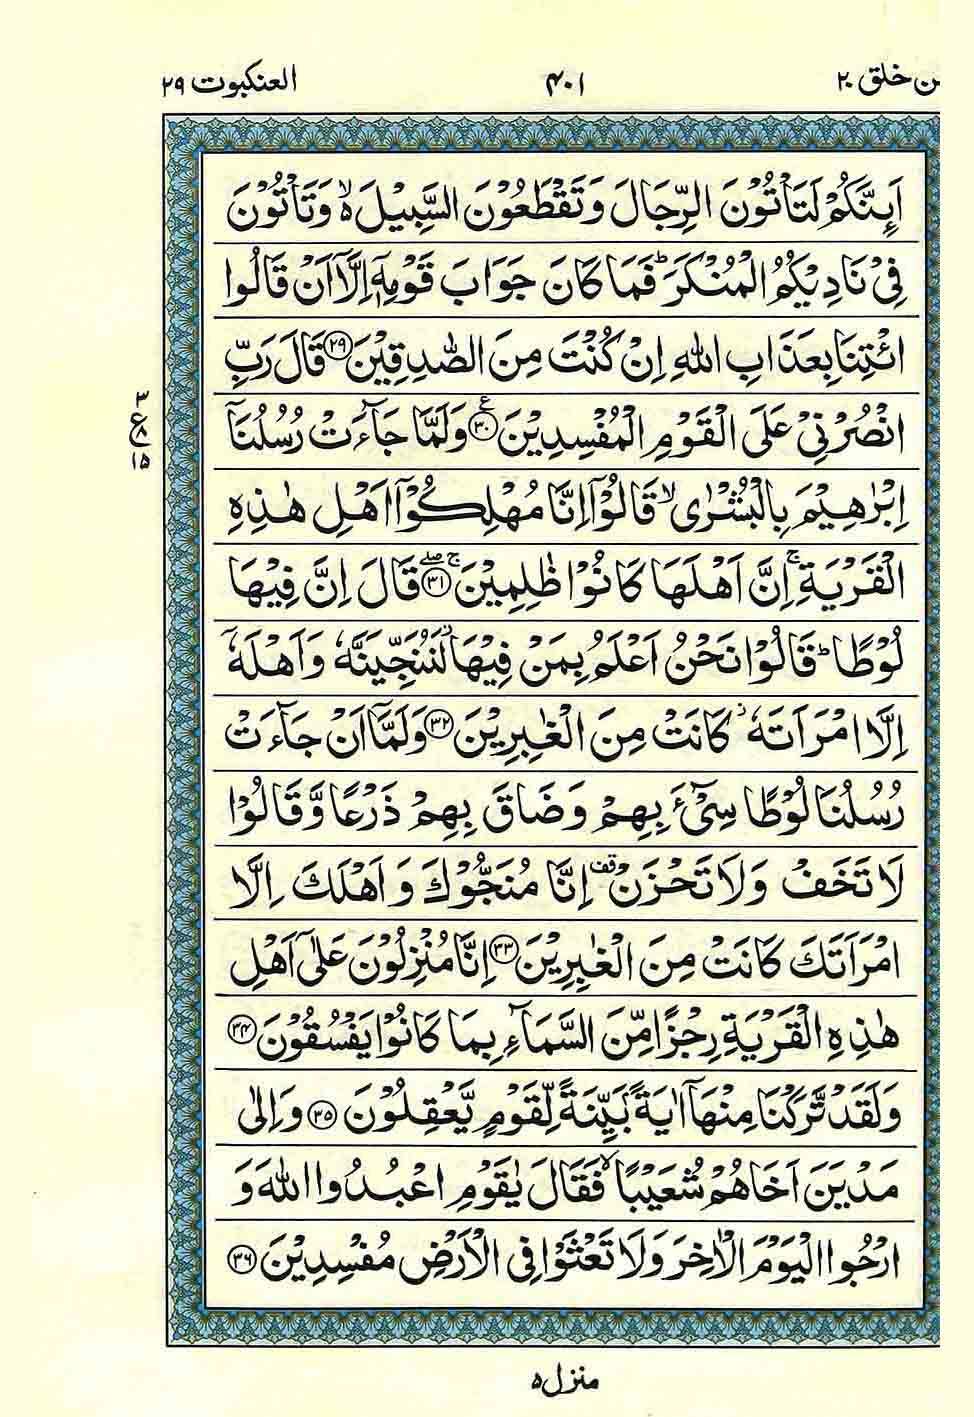 من خلق ۲۰
۴۰۱
العنکبوت ۲۹
اَئِنَّكُمْ لَتَاْتُوْنَ الرِّجَالَ وَتَقْطَعُوْنَ السَّبِيْلَ ۙ۬ وَتَاْتُوْنَ
فِيْ نَادِيْكُمُ الْمُنْكَرَ ؕ فَمَا كَانَ جَوَابَ قَوْمِهٖۤ اِلَّاۤ اَنْ قَالُوا
ائْتِنَا بِعَذَابِ اللّٰهِ اِنْ كُنْتَ مِنَ الصّٰدِقِيْنَ ﴿۲۹﴾ قَالَ رَبِّ
انْصُرْنِيْ عَلَى الْقَوْمِ الْمُفْسِدِيْنَ ﴿۳۰﴾ ع وَلَمَّا جَآءَتْ رُسُلُنَاۤ
اِبْرٰهِيْمَ بِالْبُشْرٰى ۙ قَالُوْۤا اِنَّا مُهْلِكُوْۤا اَهْلِ هٰذِهِ
الْقَرْيَةِ ۚ اِنَّ اَهْلَهَا كَانُوْا ظٰلِمِيْنَ ﴿۳۱﴾ ۚۖ قَالَ اِنَّ فِيْهَا
لُوْطًا ؕ قَالُوْا نَحْنُ اَعْلَمُ بِمَنْ فِيْهَا ؗ لَنُنَجِّيَنَّهٗ وَاَهْلَهٗۤ
اِلَّا امْرَاَتَهٗ ؗ كَانَتْ مِنَ الْغٰبِرِيْنَ ﴿۳۲﴾ وَلَمَّاۤ اَنْ جَآءَتْ
رُسُلُنَا لُوْطًا سِيْٓءَ بِهِمْ وَضَاقَ بِهِمْ ذَرْعًا وَّقَالُوْا
لَا تَخَفْ وَلَا تَحْزَنْ قف اِنَّا مُنَجُّوْكَ وَاَهْلَكَ اِلَّا
امْرَاَتَكَ كَانَتْ مِنَ الْغٰبِرِيْنَ ﴿۳۳﴾ اِنَّا مُنْزِلُوْنَ عَلٰۤى اَهْلِ
هٰذِهِ الْقَرْيَةِ رِجْزًا مِّنَ السَّمَآءِ بِمَا كَانُوْا يَفْسُقُوْنَ ﴿۳۴﴾
وَلَقَدْ تَّرَكْنَا مِنْهَاۤ اٰيَةًۢ بَيِّنَةً لِّقَوْمٍ يَّعْقِلُوْنَ ﴿۳۵﴾ وَاِلٰى
مَدْيَنَ اَخَاهُمْ شُعَيْبًا ۙ فَقَالَ يٰقَوْمِ اعْبُدُوا اللّٰهَ وَ
ارْجُوا الْيَوْمَ الْاٰخِرَ وَلَا تَعْثَوْا فِي الْاَرْضِ مُفْسِدِيْنَ ﴿۳۶﴾
۳
ع ۸
۱۵
منزل ۵